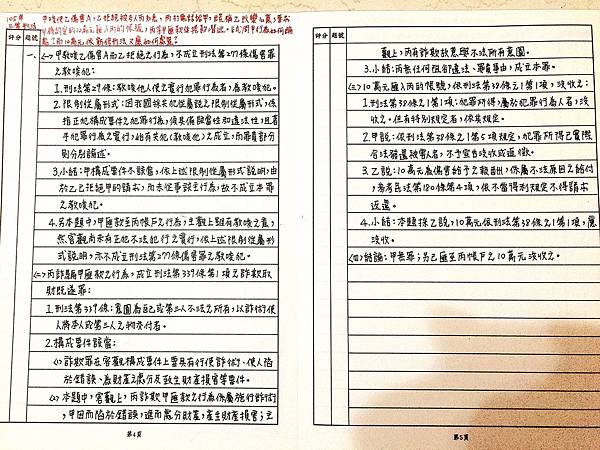 105年
三等刑法
甲唆使乙傷害A,乙拒絕
評分 題號
一、
(一)甲教唆乙傷害A而乙拒絕之行為,不成立刑法第277條傷害罪
之教唆犯:
1.刑法第29條:教唆他人使之實行犯罪行為者,為教唆犯。
2.限制從屬形式:因我國採共犯從屬說之限制從屬形式,係
指正犯構成事件之犯罪行為,須具備該當性和違法性,且著
手犯罪行為之實行,始有共犯(教唆犯)之成立,而罪責部分
則分別論述。
3.小結:甲構成事件不該當,依上述限制從屬形式說明,由
於乙已拒絕甲的請求,而未從事該主行為,故不成立本罪
之教唆犯。
4.另本題中,甲匯款至丙帳戶之行為,主觀上雖有教唆之意,
然客觀尚未有正犯不法犯行之實行,依上述限制從屬形
式說明,亦不成立刑法第277條傷害罪之教唆犯。
(二)丙詐騙甲匯款之行為,成立刑法第339條第1項之詐欺取
財既遂罪:
1.刑法第339條:意圖為自己或第三人不法之所有,以詐術使
人將本人或第三人之物交付者。
2.構成事件該當:
(1)詐欺罪在客觀構成事件上要具有行使詐術、使人陷
於錯誤、為財產之處分及致生財產損害等要件。
(2)本題中,客觀上,丙詐欺甲匯款之行為係屬施行詐術
,甲因而陷於錯誤,進而處分財產,產生財產損害;主
第4頁
評分 題號
觀上,丙有詐欺故意與不法所有意圖。
3.小結:丙無任何阻卻違法、罪責事由,成立本罪。
(三)10萬元匯入丙的帳號,依刑法第38條之1第1項,沒收之:
1.刑法第38條之1第1項:犯罪所得,屬於犯罪行為人者,沒
收之。但有特別規定者,依其規定。
2.甲說:依刑法第38條之1第5項規定,犯罪所得已實際
合法發還被害人者,不予宣告沒收或追徵。
3.乙說:10萬為傷害給予之報酬,係屬不法原因之給付
,參考民法第180條第4項,依不當得利規定不得請求
返還。
4.小結:本題採乙說,10萬元依刑法第38條之1第1項,應
沒收。
(四)結論:甲無罪;另已匯至丙帳戶之10萬元沒收之。
第5頁